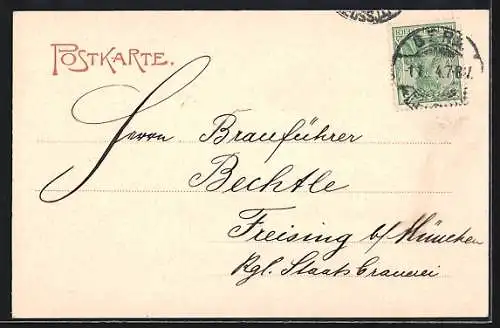 POSTKARTE.
Herrn Brauführer
Bechtle
Freising b/München
Kgl. Staatsbrauerei